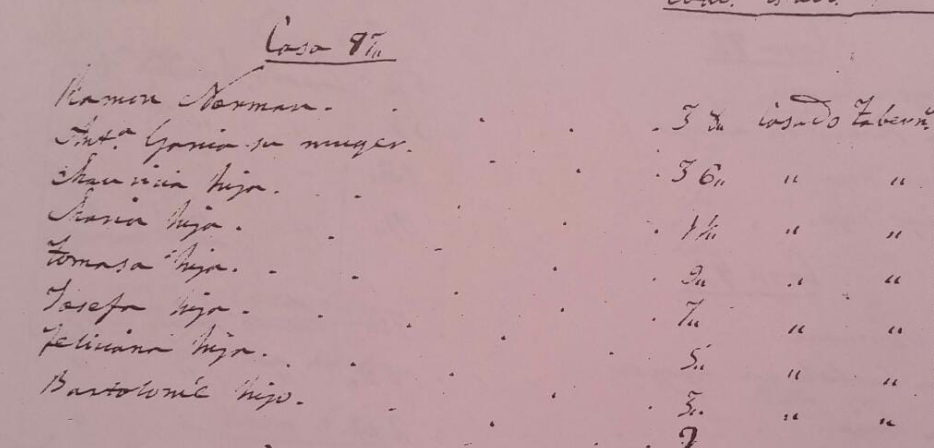 Casa 87,,
Ramon Norman. 38,, Casado Tabern.º
Ant.ª Garcia su muger. 36,, ,, ,,
Mauricia hija. 11,, ,, ,,
Maria hija. 9,, ,, ,,
Tomasa hija. 7,, ,, ,,
Josefa hija. 5,, ,, ,,
Feliciana hija. 3,, ,, ,,
Bartolomé hijo. 2